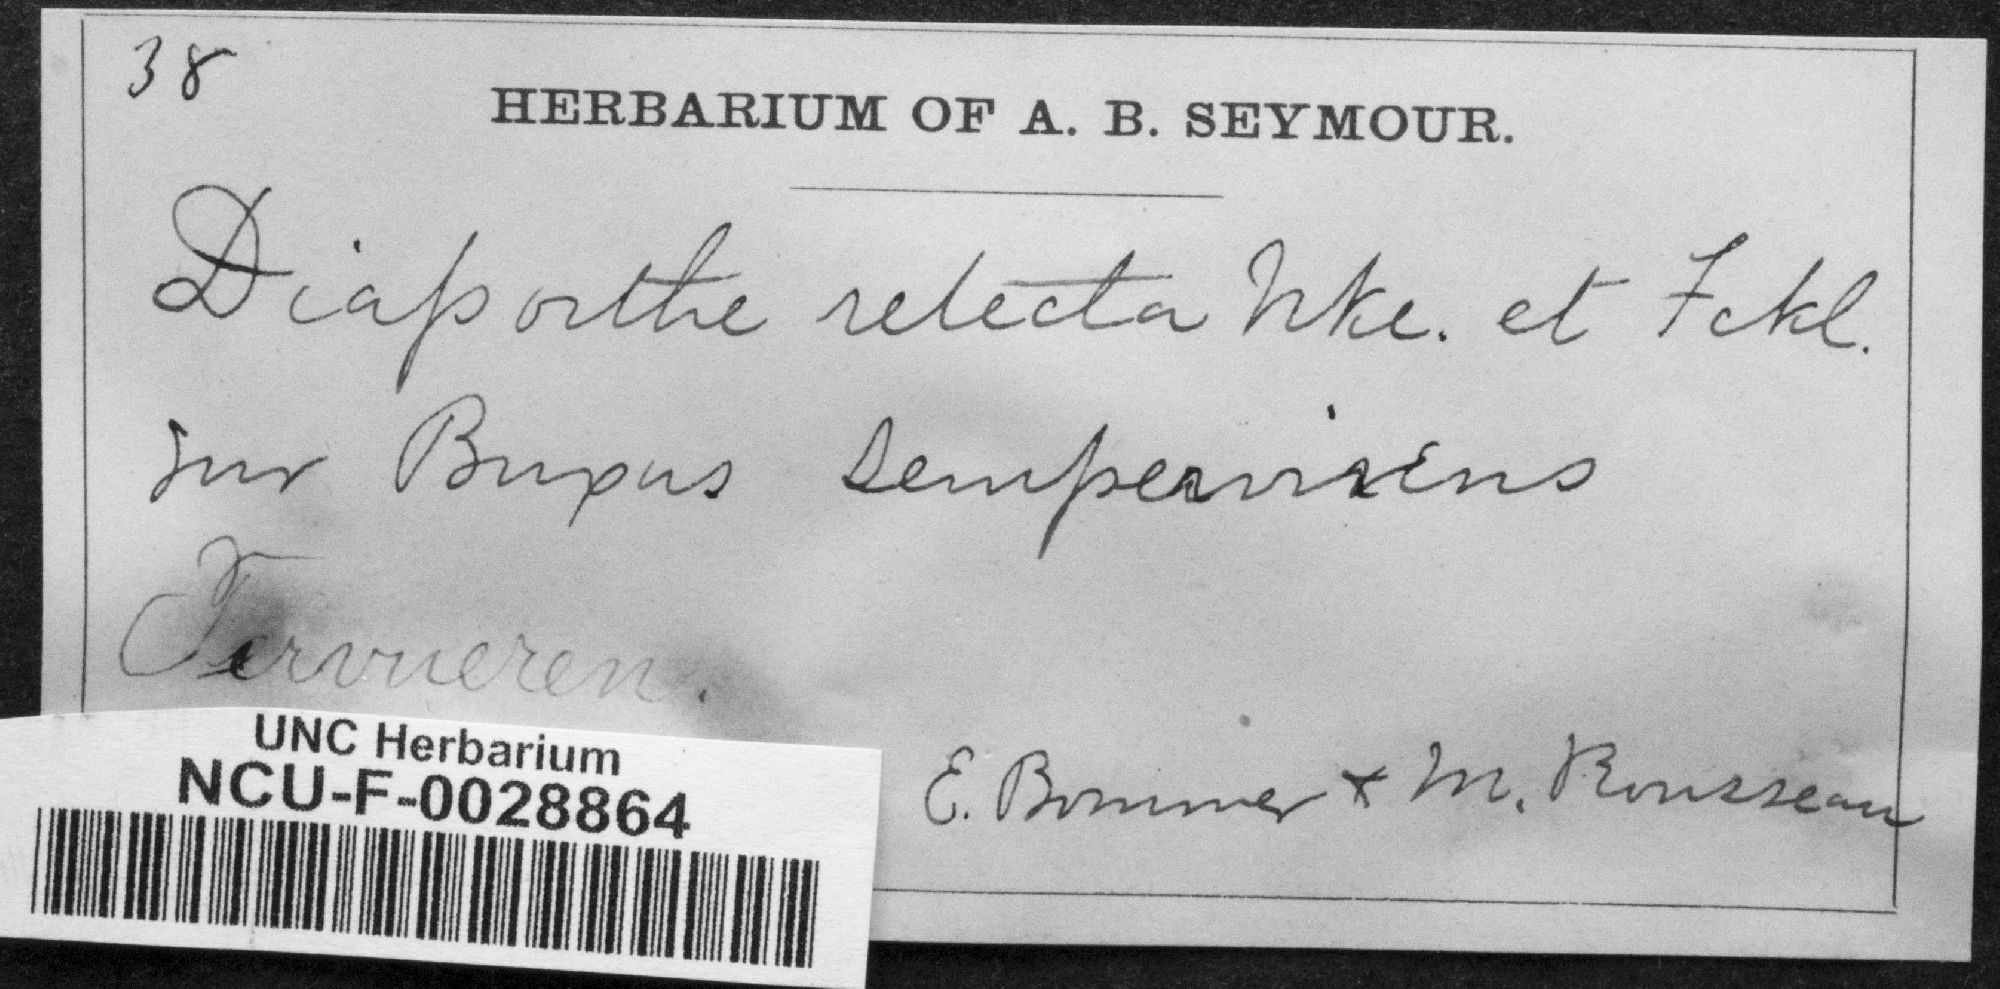 38
HERBARIUM OF A. B. SEYMOUR.
Diaporthe retecta Nke. et Fckl.
sur Buxus sempervirens
Tervueren.
E. Bommer & M. Rousseau
UNC Herbarium
NCU-F-0028864